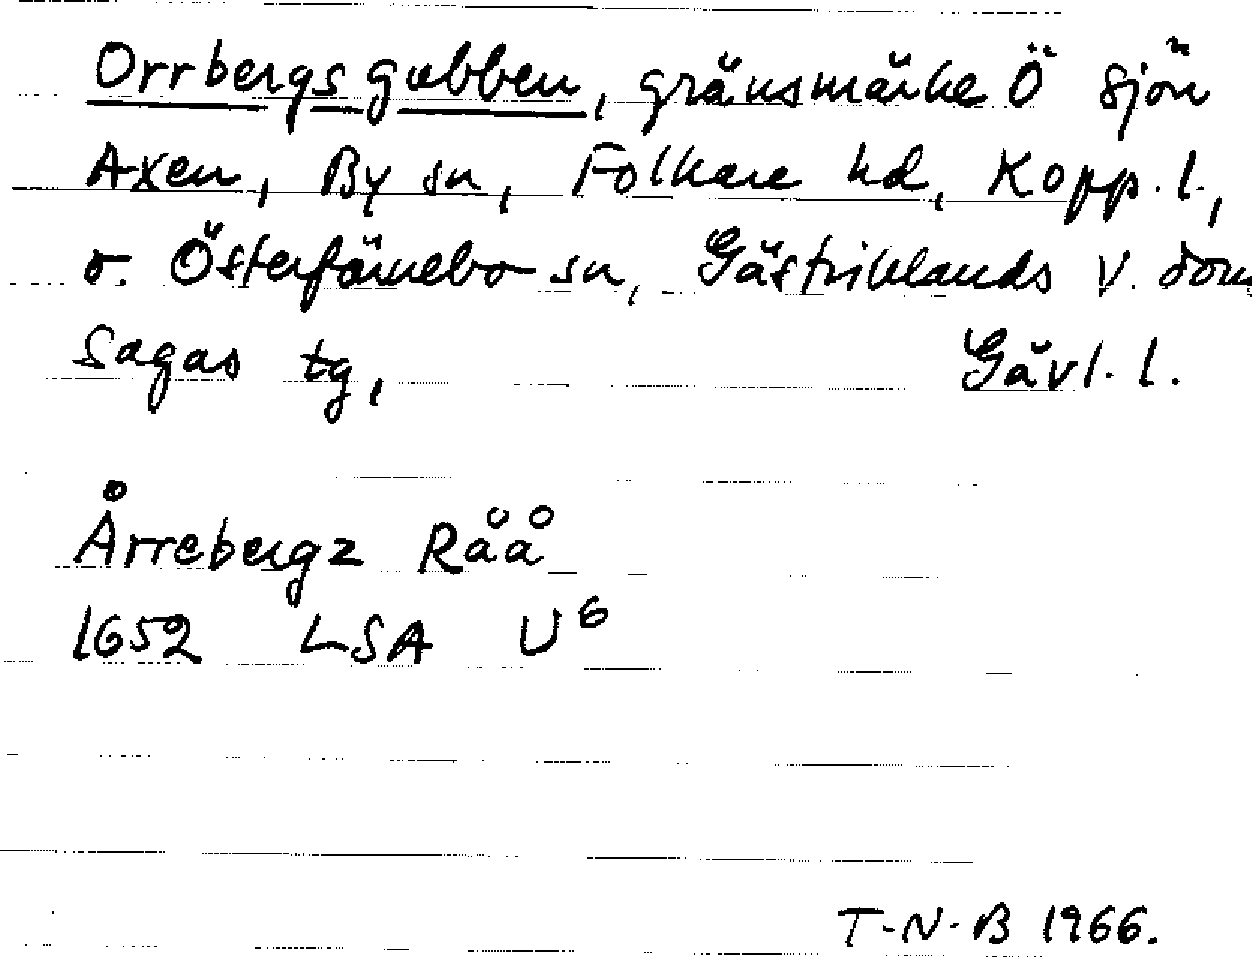 Orrbergsgubben, gränsmärke Ö sjön
Axen, By sn, Folkare hd, Kopp. l.,
o. Österfärnebo sn, Gästriklands V. dom
sagas tg, Gävl. l.
Årrebergz Råå
1652 LSA U⁶
T-N-B 1966.